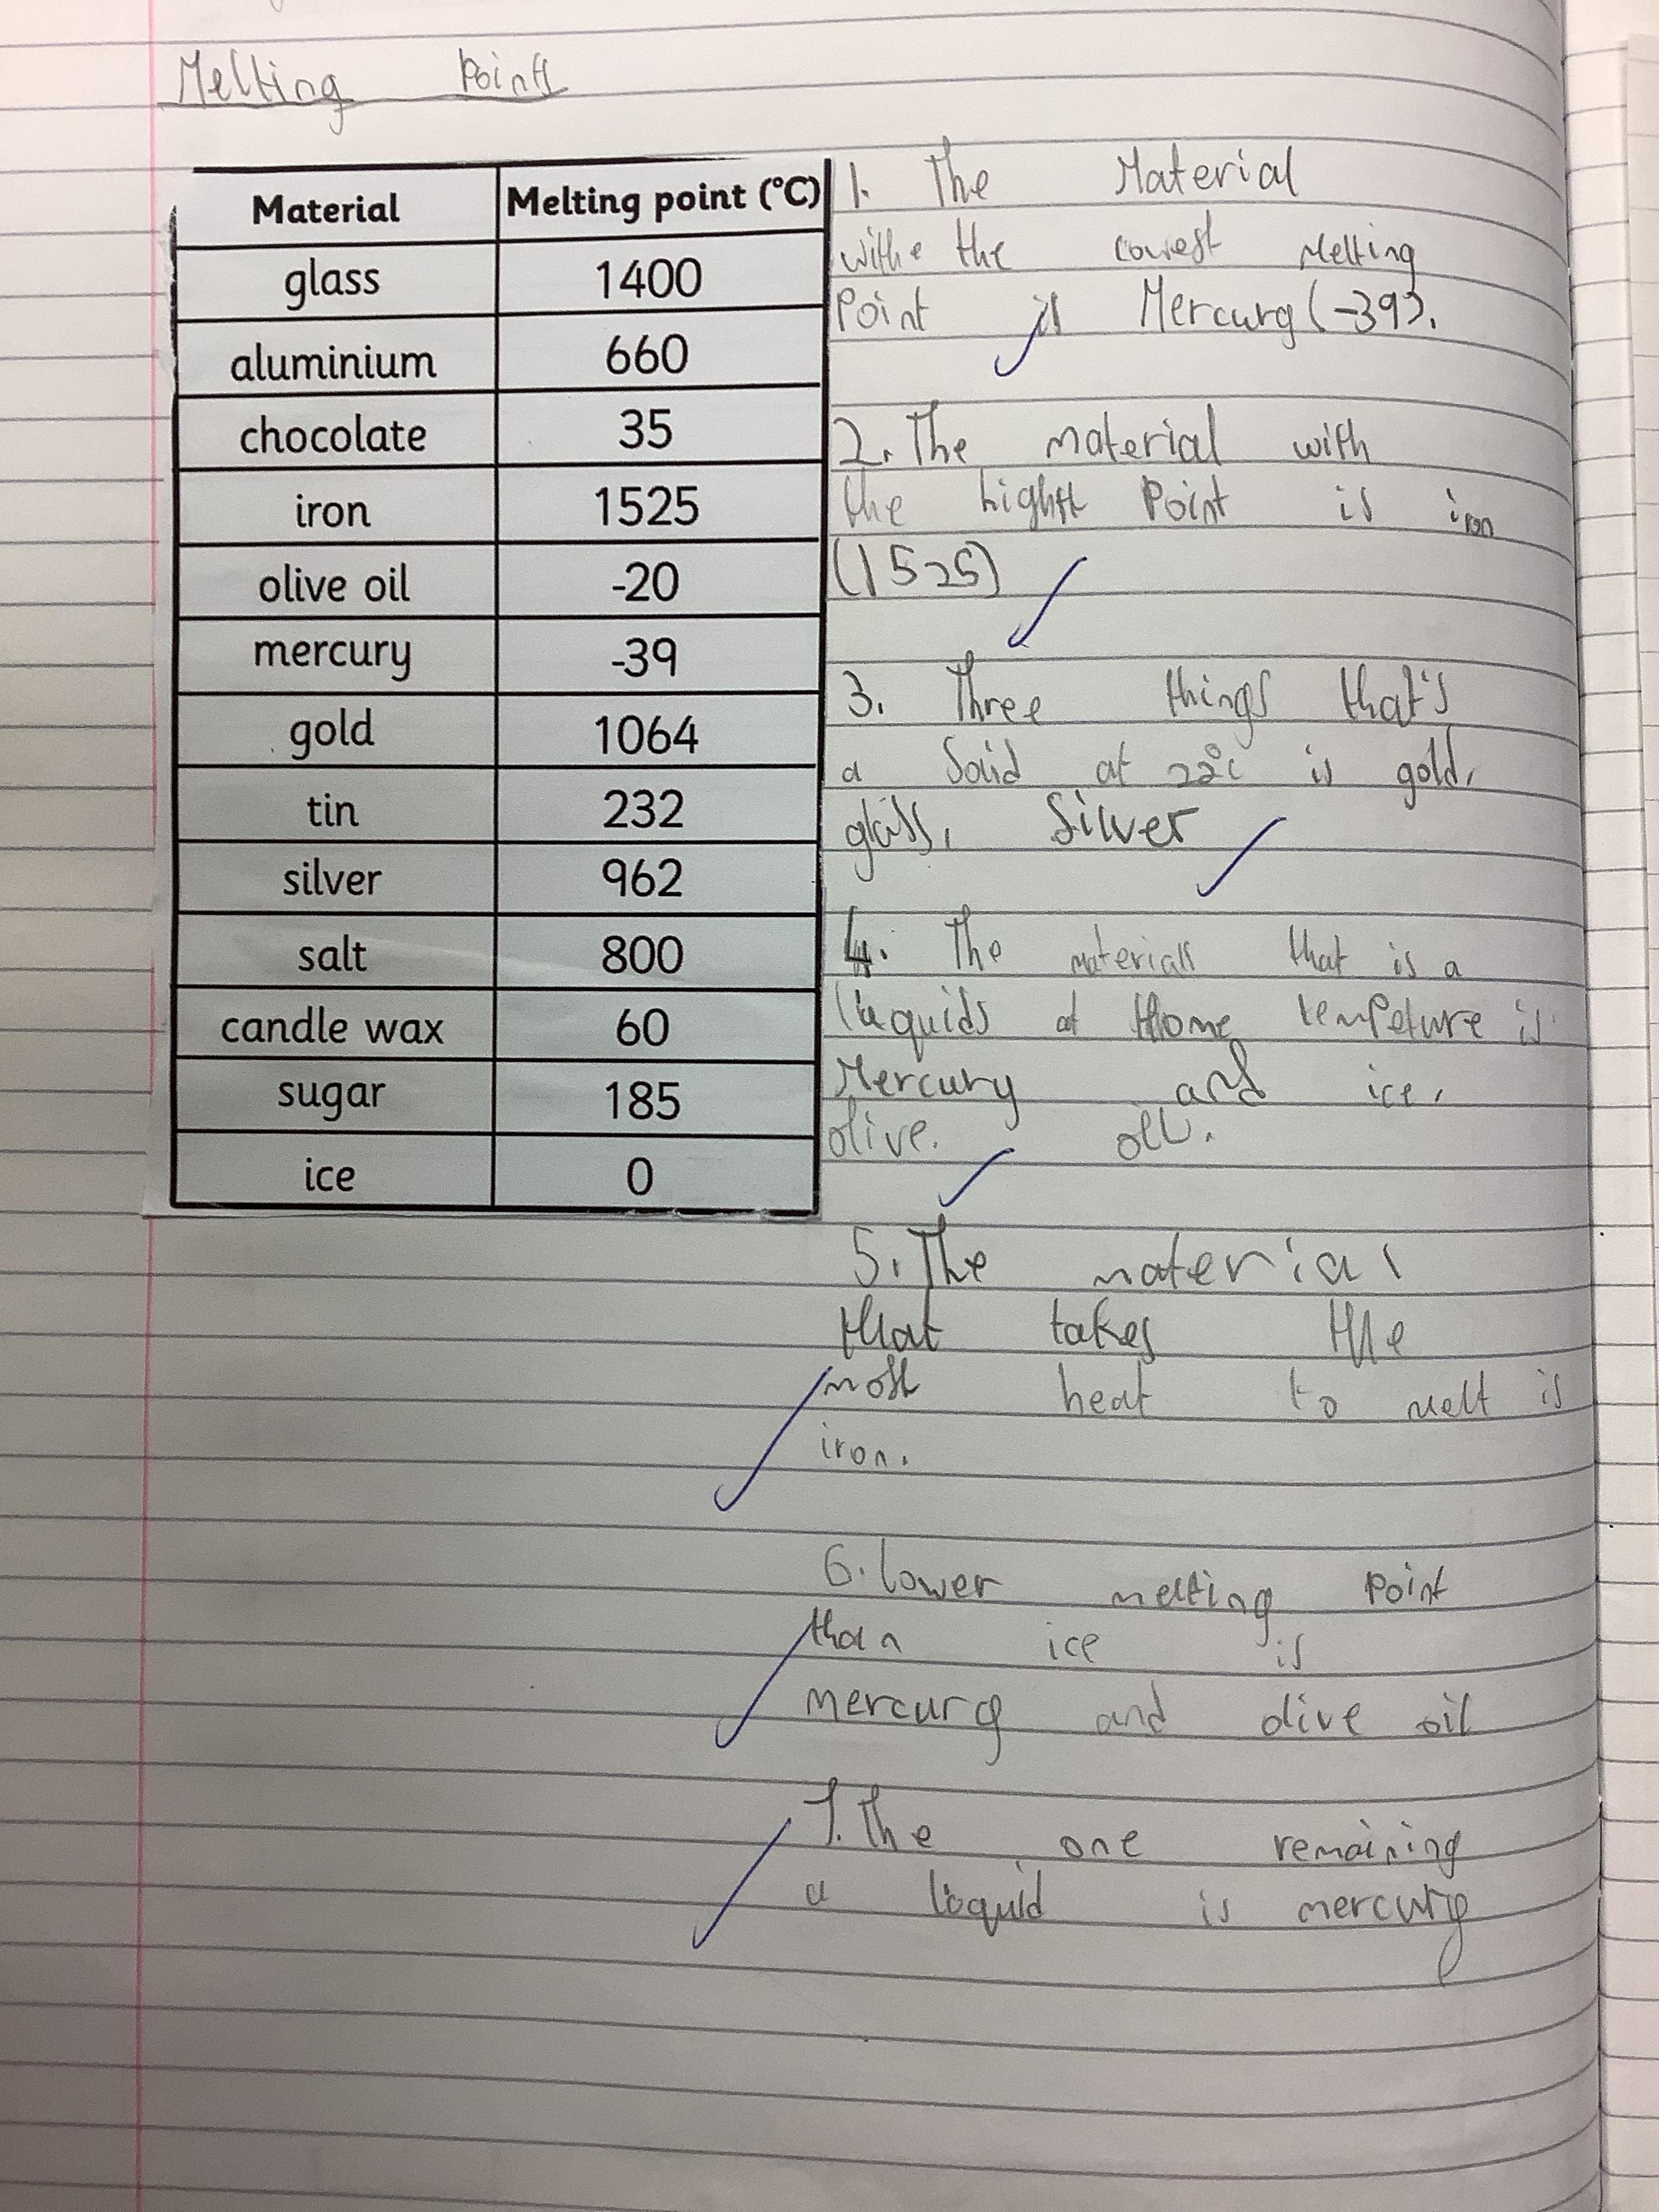 Melting Points
Material Melting point (°C)
glass 1400
aluminium 660
chocolate 35
iron 1525
olive oil -20
mercury -39
gold 1064
tin 232
silver 962
salt 800
candle wax 60
sugar 185
ice 0
1. The Material
withe the lowest Melting
Point is Mercurg (-39).
2. The material with
the hight Point is iron
(1525)
3. Three things that's
a Soild at 22°c is gold,
glass, Silver
4. The materials that is a
liquids at Home tempeture is
Mercury and ice,
olive. oil.
5. The material
that takes the
most heat to melt is
iron.
6. lower melting Point
than ice is
mercurg and olive oil
7. The one remaining
a lioquid is mercury